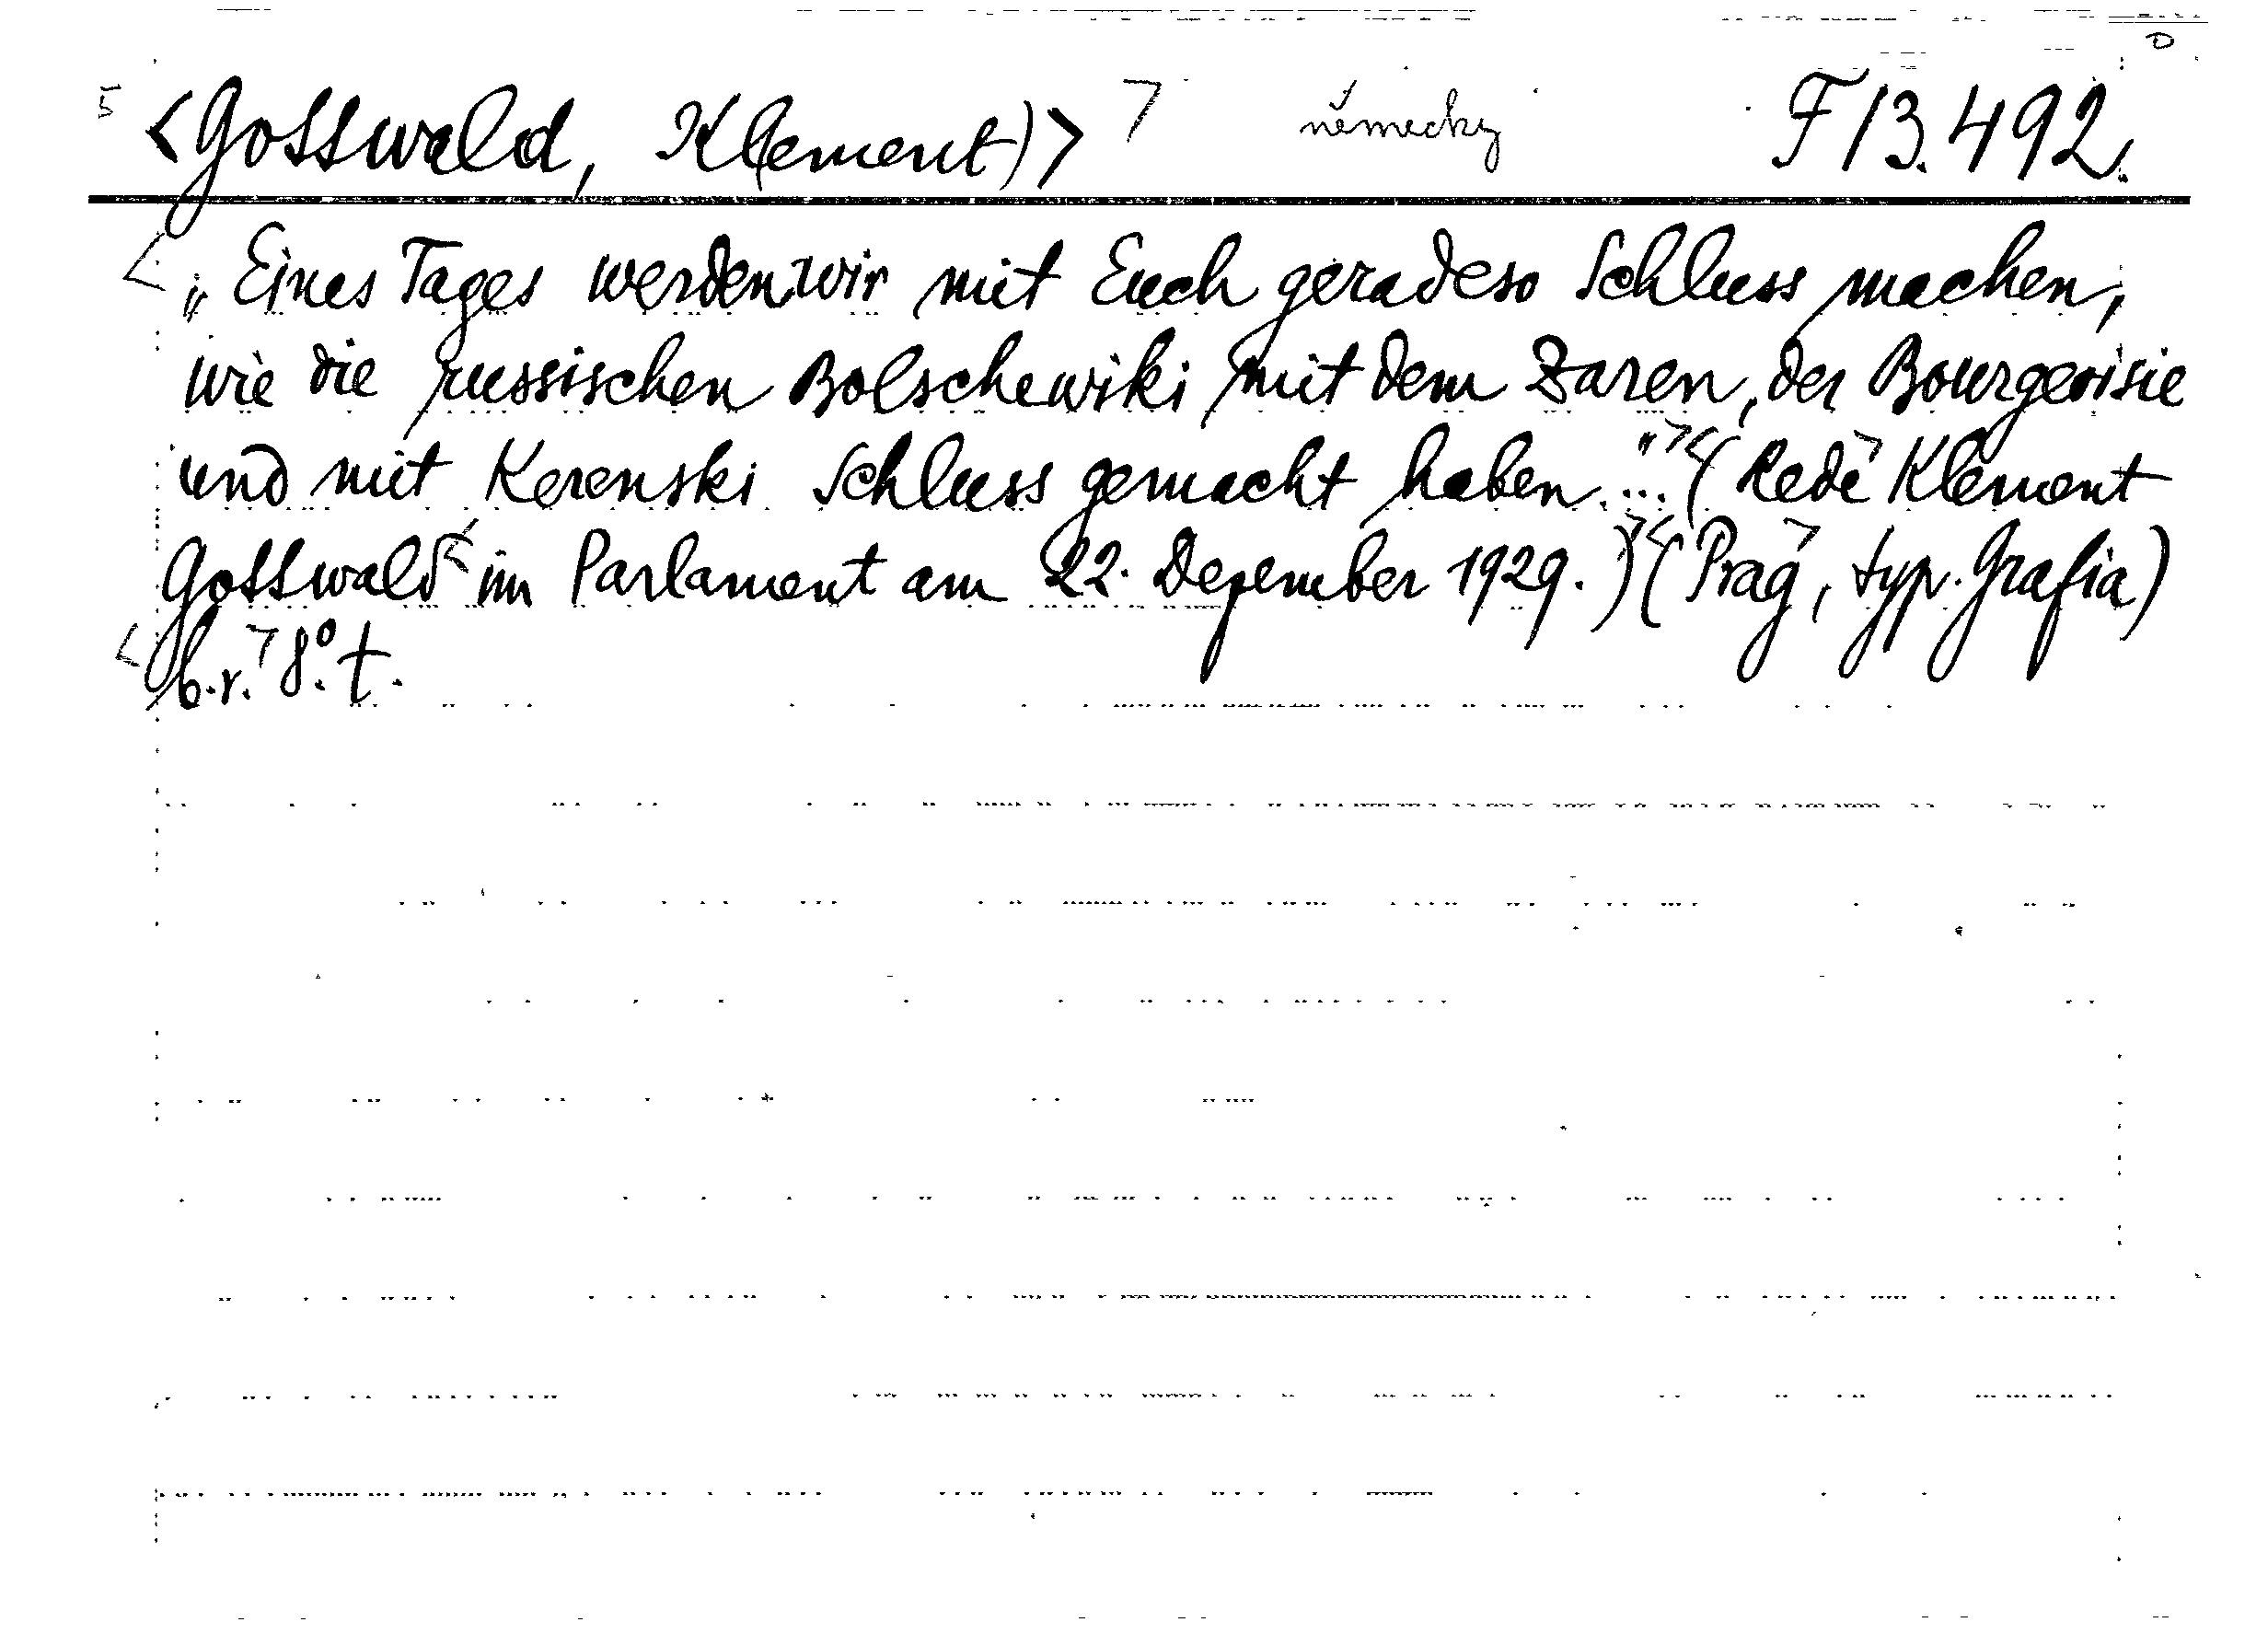 5 <Gottwald, Klement)> 7 německy F 13.492.
„Eines Tages werden wir mit Euch geradeso Schluss machen,
wie die russischen Bolschewiki mit dem Zaren, der Bourgeoisie
und mit Kerenski Schluss gemacht haben...." (Rede Klement
Gottwald im Parlament am 22. Dezember 1929.) (Prag, typ. Grafia)
b.r. 8°. t.